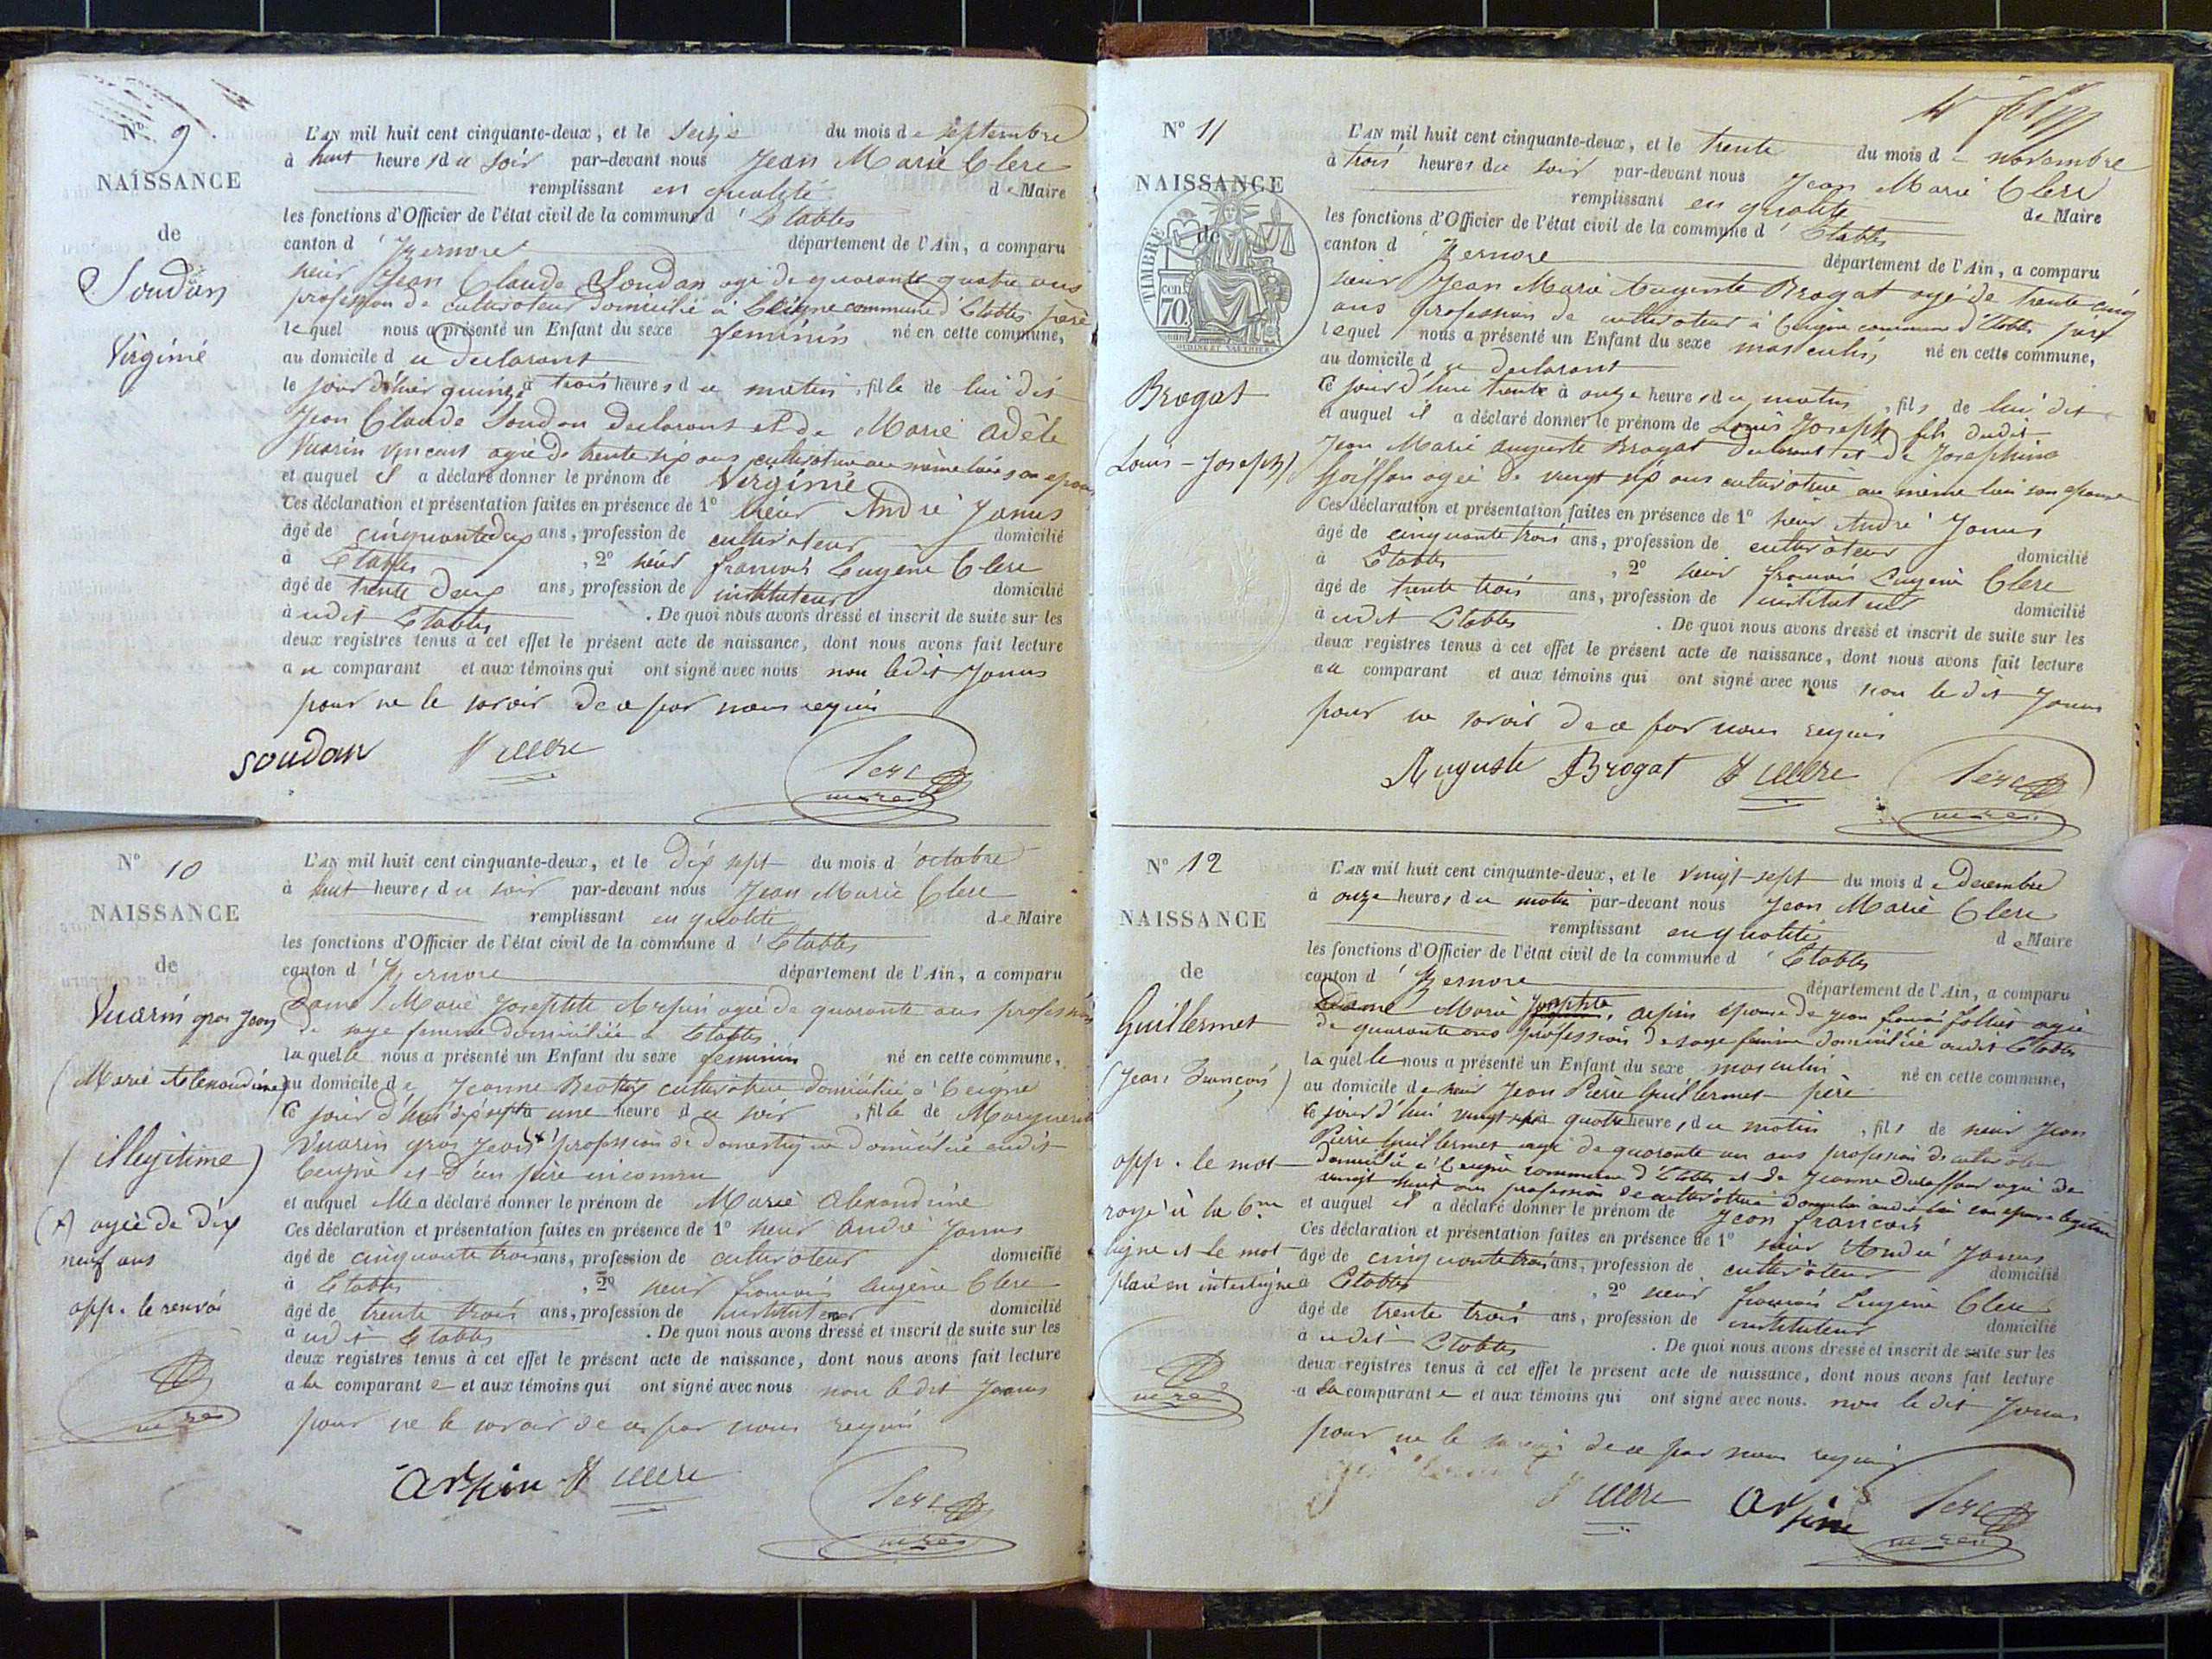 N° 9.
NAISSANCE
de
Soudan
Virginie
L'AN mil huit cent cinquante-deux, et le seize du mois de septembre
à huit heures du soir par-devant nous Jean Marie Clerc
remplissant en qualité de Maire
les fonctions d'Officier de l'état civil de la commune d' Etables
canton d' Izernore département de l'Ain, a comparu
sieur Jean Claude Soudan agé de quarante quatre ans
profession de cultivateur domicilié à Ceigne commune d'Etables père
lequel nous a présenté un Enfant du sexe feminin né en cette commune,
au domicile du declarant
le jour d'hier quinze à trois heures du matin, fille de lui dit
Jean Claude Soudan declarant et de Marie Adèle
Vuarin Vincent agée de trente six ans cultivatrice au même lieu son epouse
et auquel il a déclaré donner le prénom de Virginie
Ces déclaration et présentation faites en présence de 1° sieur André Janus
âgé de cinquante deux ans, profession de cultivateur domicilié
à Etables, 2° sieur francois Eugene Clerc
âgé de trente deux ans, profession de instituteur domicilié
audit Etables. De quoi nous avons dressé et inscrit de suite sur les
deux registres tenus à cet effet le présent acte de naissance, dont nous avons fait lecture
au comparant et aux témoins qui ont signé avec nous non ledit Janus
pour ne le savoir de ce par nous requis
soudan Clerc Clerc
maire
N° 10
NAISSANCE
de
Vuarin gros Jean
(Marie Alexandrine)
(illegitime)
(+) agée de dix
neuf ans
app. le renvoi
L'AN mil huit cent cinquante-deux, et le dix sept du mois d'octobre
à huit heures du soir par-devant nous Jean Marie Clerc
remplissant en qualité de Maire
les fonctions d'Officier de l'état civil de la commune d' Etables
canton d' Izernore département de l'Ain, a comparu
Dame Marie Josephte Arpin agée de quarante ans profession
de sage femme domiciliée à Etables
laquelle nous a présenté un Enfant du sexe feminin né en cette commune,
au domicile de Jeanne Beatrix cultivatrice domiciliée à Ceigne
ce jour d'hui dix sept à une heure du soir, fille de Marguerite
Vuarin gros Jean (+) profession de domestique domiciliée audit
Ceigne et d'un père inconnu
et auquel elle a déclaré donner le prénom de Marie Alexandrine
Ces déclaration et présentation faites en présence de 1° sieur André Janus
âgé de cinquante trois ans, profession de cultivateur domicilié
à Etables, 2° sieur francois Eugène Clerc
âgé de trente trois ans, profession de instituteur domicilié
audit Etables. De quoi nous avons dressé et inscrit de suite sur les
deux registres tenus à cet effet le présent acte de naissance, dont nous avons fait lecture
a la comparante et aux témoins qui ont signé avec nous non ledit Janus
pour ne le savoir de ce par nous requis
arpin Clerc Clerc
maire
N° 11
NAISSANCE
de
TIMBRE
70
Brogat
(Louis-Joseph)
L'AN mil huit cent cinquante-deux, et le trente du mois de novembre
à trois heures du soir par-devant nous Jean Marie Clerc
remplissant en qualité de Maire
les fonctions d'Officier de l'état civil de la commune d' Etables
canton d' Izernore département de l'Ain, a comparu
sieur Jean Marie Auguste Brogat agé de trente cinq
ans profession de cultivateur à Ceigne commune d'Etables père
lequel nous a présenté un Enfant du sexe masculin né en cette commune,
au domicile du declarant
ce jour d'hui trente à onze heures du matin, fils de lui dit
et auquel il a déclaré donner le prénom de Louis Joseph fils dudit
Jean Marie auguste Brogat declarant et de Josephine
agée de vingt six ans cultivatrice au même lieu son epouse
Ces déclaration et présentation faites en présence de 1° sieur André Janus
âgé de cinquante trois ans, profession de cultivateur domicilié
à Etables, 2° sieur francois Eugène Clerc
âgé de trente trois ans, profession de instituteur domicilié
audit Etables. De quoi nous avons dressé et inscrit de suite sur les
deux registres tenus à cet effet le présent acte de naissance, dont nous avons fait lecture
au comparant et aux témoins qui ont signé avec nous non le dit Janus
pour ne savoir de ce par nous requis
Auguste Brogat Clerc Clerc
maire
N° 12
NAISSANCE
de
Guillermet
(Jean François)
app. le mot
rayé à la 6me
ligne et le mot
placé en interligne
maire
L'AN mil huit cent cinquante-deux, et le vingt-sept du mois de Decembre
à onze heures du matin par-devant nous Jean Marie Clerc
remplissant en qualité de Maire
les fonctions d'Officier de l'état civil de la commune d' Etables
canton d' Izernore département de l'Ain, a comparu
Dame Marie Josephte arpin epouse de Jean francois follié agée
de quarante ans profession de sage femme domiciliée audit Etables
laquelle nous a présenté un Enfant du sexe masculin né en cette commune,
au domicile de sieur Jean Pierre Guillermet père
ce jour d'hui vingt sept quatre heures du matin, fils de sieur Jean
Pierre Guillermet agé de quarante un ans profession de cultivateur
domicilié à Ceigne commune d'Etables et de Jeanne Duraffour agée de
vingt huit ans profession de cultivatrice domiciliée audit lieu son epouse legitime
et auquel il a déclaré donner le prénom de Jean francois
Ces déclaration et présentation faites en présence de 1° sieur André Janus
âgé de cinquante trois ans, profession de cultivateur domicilié
à Etables, 2° sieur francois Eugène Clerc
âgé de trente trois ans, profession de instituteur domicilié
audit Etables. De quoi nous avons dressé et inscrit de suite sur les
deux registres tenus à cet effet le présent acte de naissance, dont nous avons fait lecture
a la comparante et aux témoins qui ont signé avec nous. non le dit Janus
pour ne le savoir de ce par nous requis
Clerc Arpin Clerc
maire